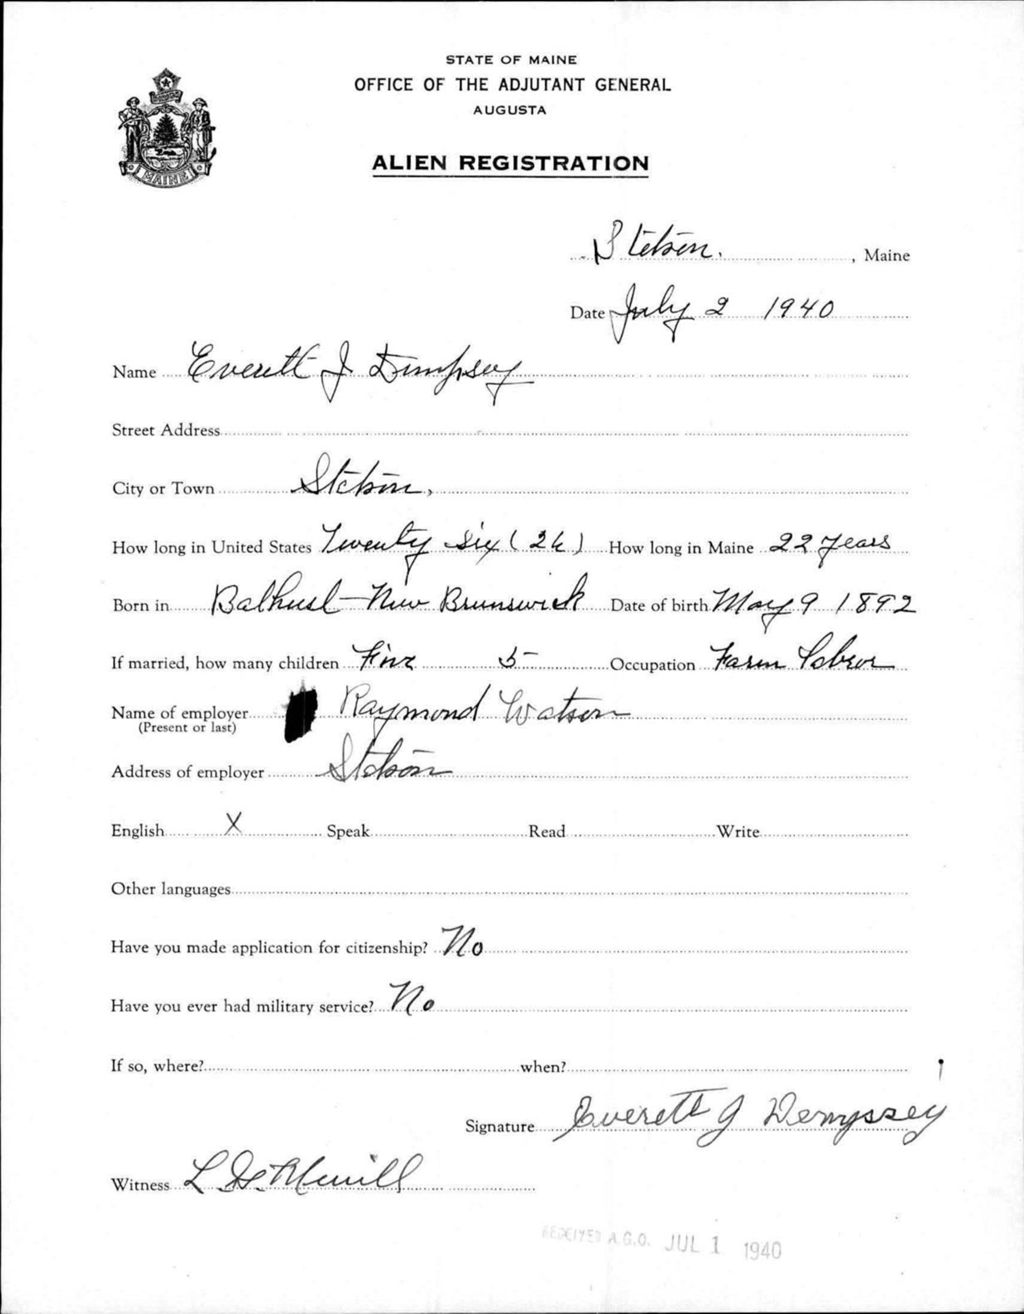 STATE OF MAINE
OFFICE OF THE ADJUTANT GENERAL
AUGUSTA
ALIEN REGISTRATION
MAINE
Stetson, Maine
Date July 2 1940
Name Everett J Dempsey
Street Address
City or Town Stetson,
How long in United States Twenty six (26) How long in Maine 22 years
Born in Bathust - New Brunswick Date of birth May 9 1892
If married, how many children Five 5 Occupation Farm Labror
Name of employer Raymond Watson
(Present or last)
Address of employer Stetson
English X Speak Read Write
Other languages
Have you made application for citizenship? No
Have you ever had military service? No
If so, where? when?
Signature Everett J Dempssey
Witness L Merrill
RECEIVED A.G.O. JUL 1 1940